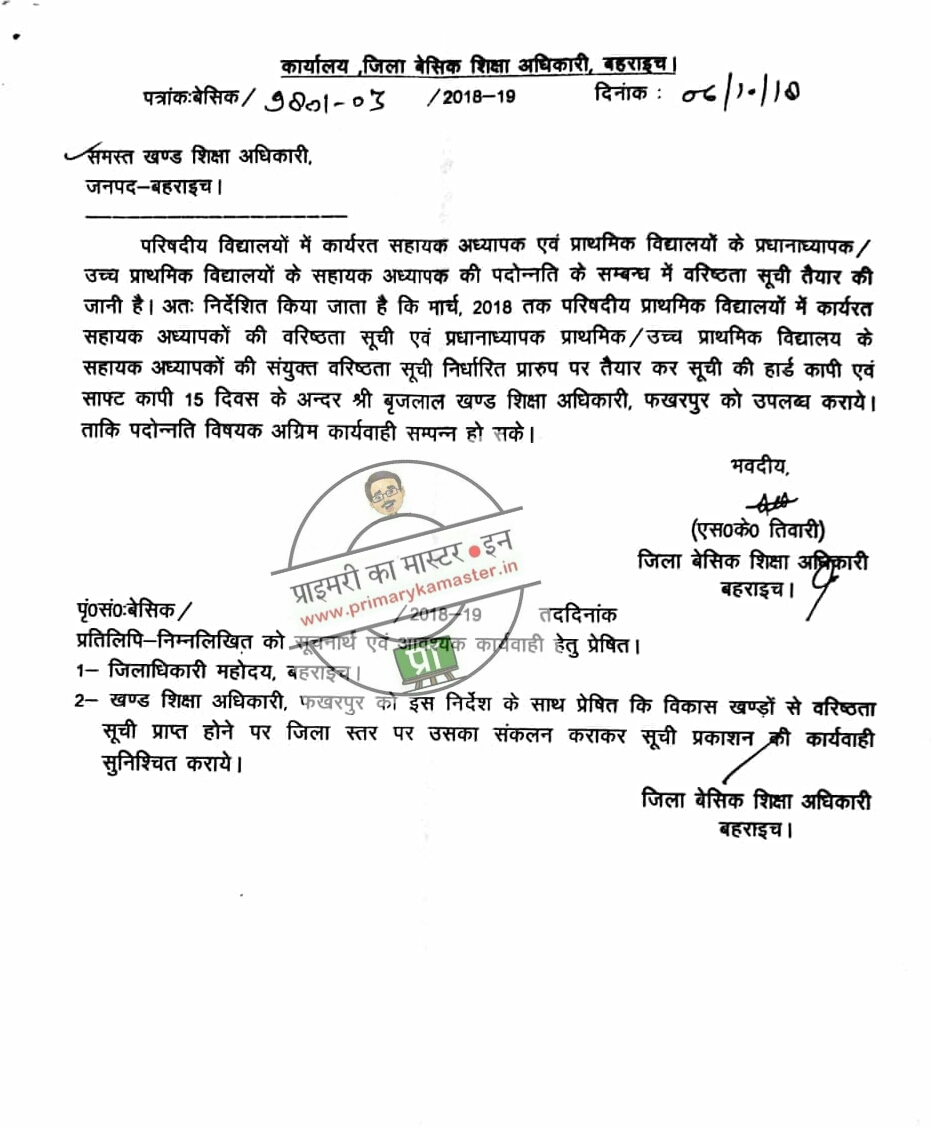 कार्यालय ,जिला बेसिक शिक्षा अधिकारी, बहराइच।
पत्रांकःबेसिक/ 9801-03 /2018-19 दिनांक : 06/10/18
समस्त खण्ड शिक्षा अधिकारी,
जनपद-बहराइच।
परिषदीय विद्यालयों में कार्यरत सहायक अध्यापक एवं प्राथमिक विद्यालयों के प्रधानाध्यापक/
उच्च प्राथमिक विद्यालयों के सहायक अध्यापक की पदोन्नति के सम्बन्ध में वरिष्ठता सूची तैयार की
जानी है। अतः निर्देशित किया जाता है कि मार्च, 2018 तक परिषदीय प्राथमिक विद्यालयों में कार्यरत
सहायक अध्यापकों की वरिष्ठता सूची एवं प्रधानाध्यापक प्राथमिक/उच्च प्राथमिक विद्यालय के
सहायक अध्यापकों की संयुक्त वरिष्ठता सूची निर्धारित प्रारुप पर तैयार कर सूची की हार्ड कापी एवं
साफ्ट कापी 15 दिवस के अन्दर श्री बृजलाल खण्ड शिक्षा अधिकारी, फखरपुर को उपलब्ध कराये।
ताकि पदोन्नति विषयक अग्रिम कार्यवाही सम्पन्न हो सके।
भवदीय,
(एस0के0 तिवारी)
जिला बेसिक शिक्षा अधिकारी
बहराइच।
प्राइमरी का मास्टर●इन
www.primarykamaster.in
प्रा
पृं0सं0ःबेसिक/ /2018-19 तददिनांक
प्रतिलिपि-निम्नलिखित को सूचनार्थ एवं आवश्यक कार्यवाही हेतु प्रेषित।
1- जिलाधिकारी महोदय, बहराइच।
2- खण्ड शिक्षा अधिकारी, फखरपुर को इस निर्देश के साथ प्रेषित कि विकास खण्ड़ों से वरिष्ठता
सूची प्राप्त होने पर जिला स्तर पर उसका संकलन कराकर सूची प्रकाशन की कार्यवाही
सुनिश्चित कराये।
जिला बेसिक शिक्षा अधिकारी
बहराइच।